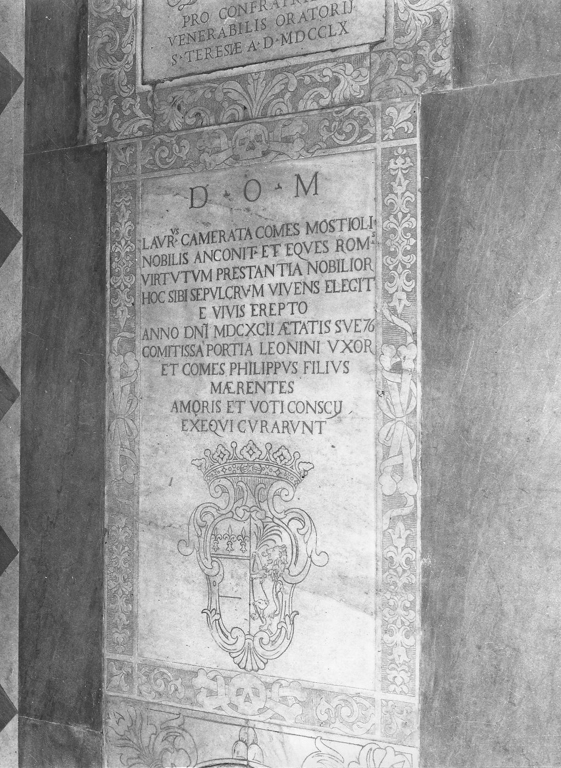 PRO CONFRATRI
VENERABILIS ORATORIJ
S. TERESIÆ A·D·MDCCLX
D·O·M
LAVR.VS CAMERATA COMES MOSTIOLI·
NOBILIS ANCONIT·ET EQVES ROM·S
VIRTUTVM PRESTANTIA NOBILIOR
HOC SIBI SEPULCRVM VIVENS ELEGIT
E VIVIS EREPTO
ANNO DNI MDCXCII ÆTATIS SVE 76
COMITISSA PORTIA LEONINI VXOR
ET COMES PHILIPPVS FILIVS
MÆRENTES
AMORIS ET VOTI CONSCIJ
EXEQVI CVRARVNT